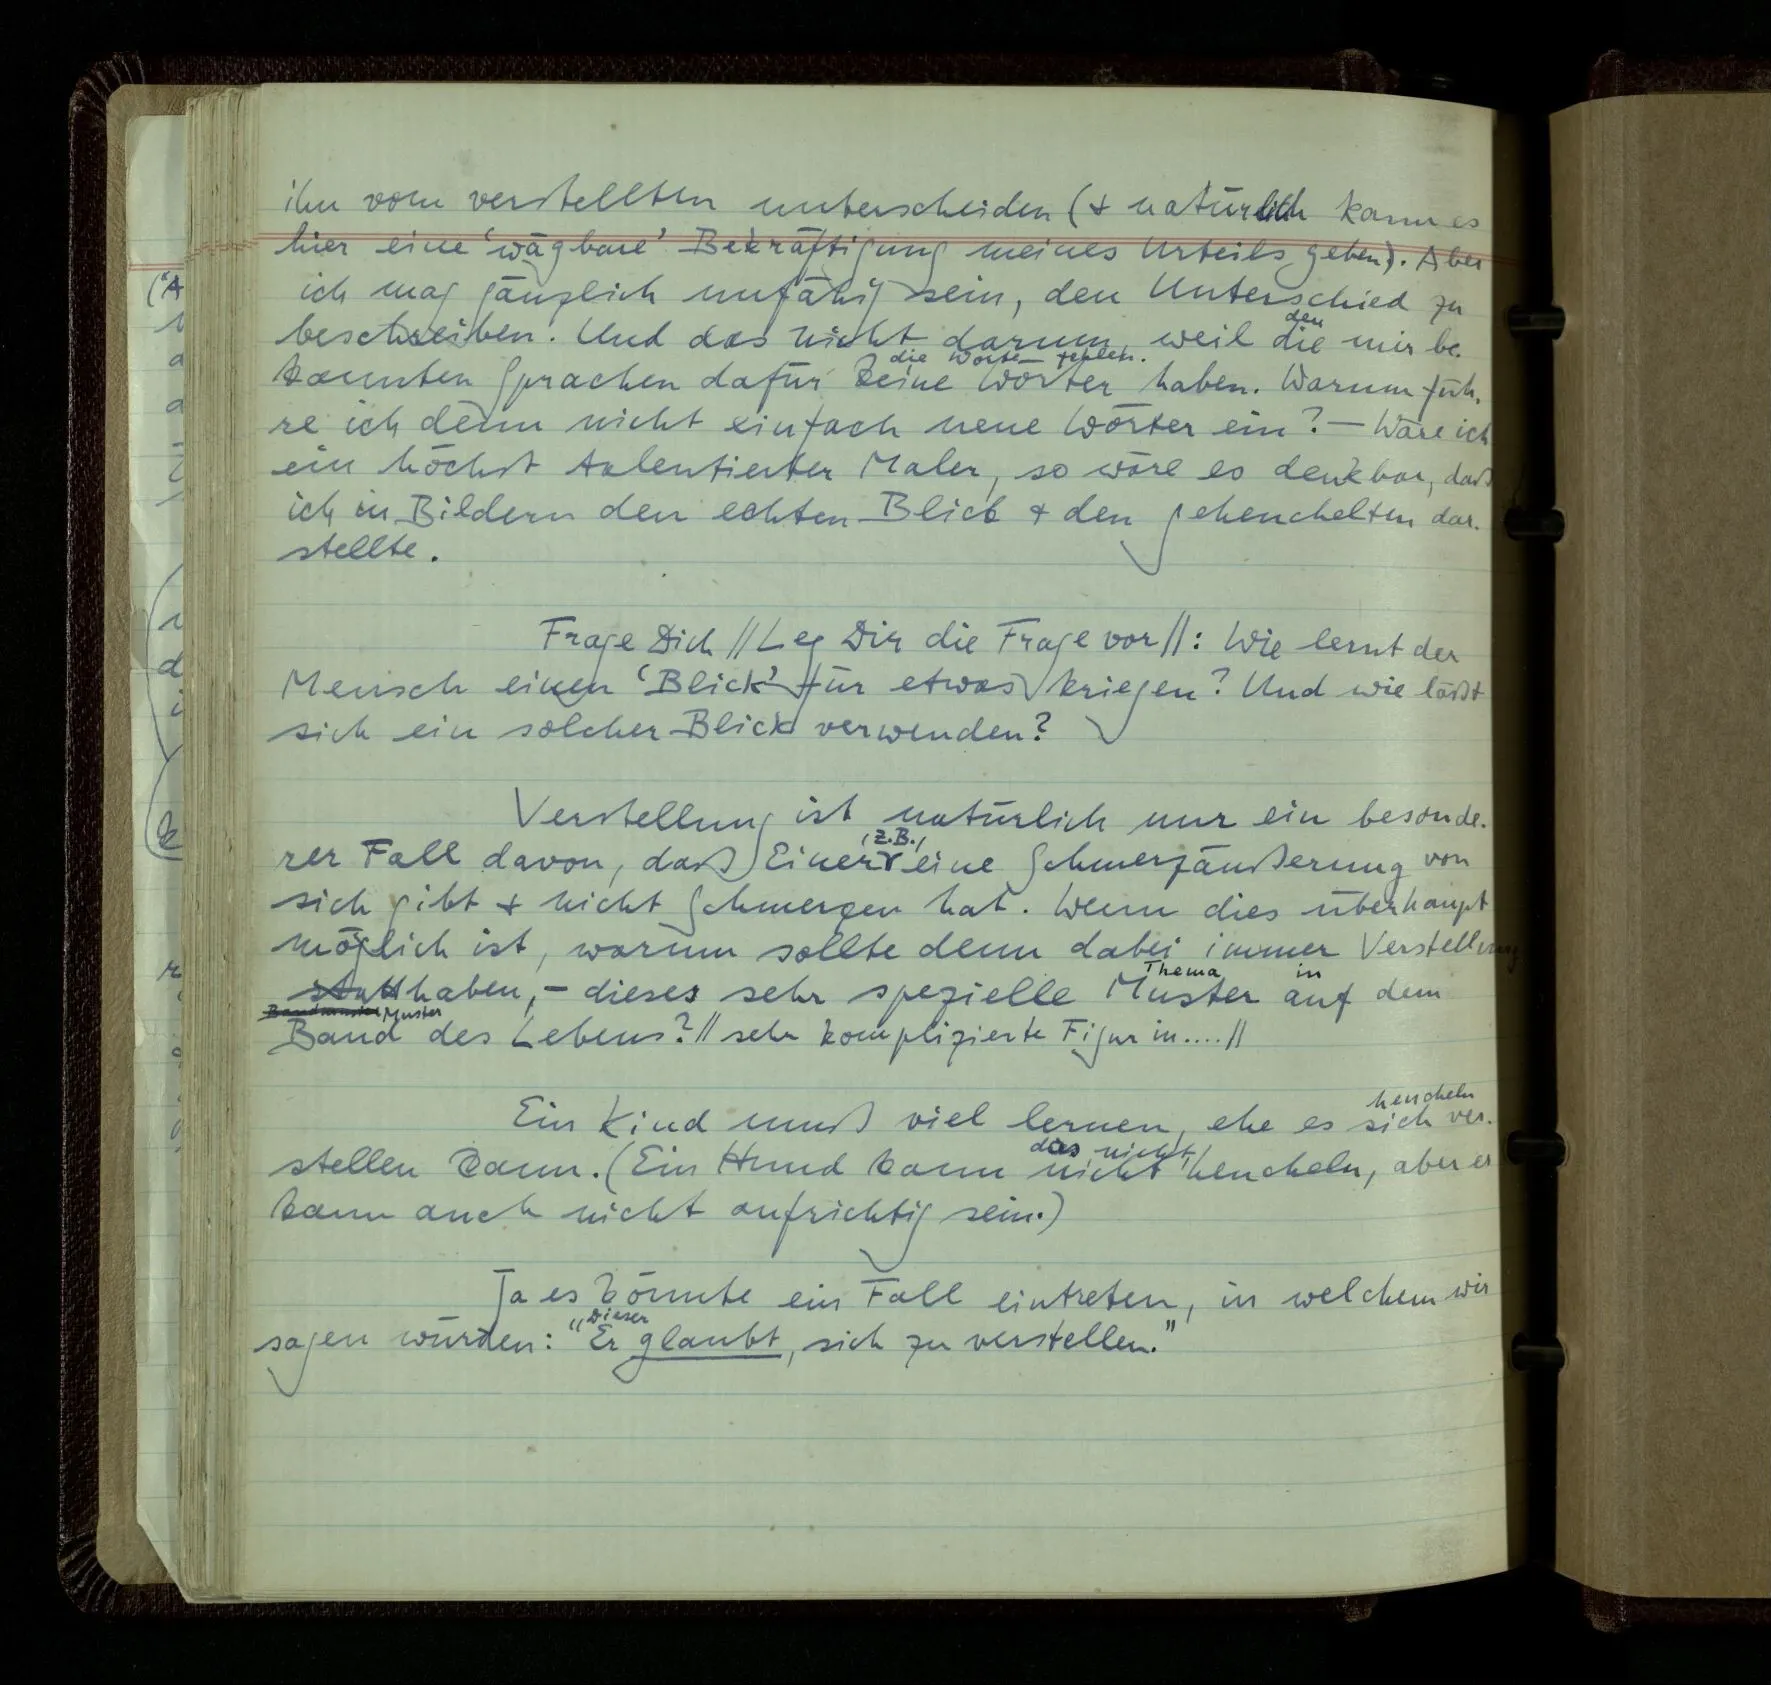 ihn vom verstellten unterscheiden (+ natürlich kann es
hier eine 'wägbare' Bekräftigung meines Urteils geben). Aber
ich mag gänzlich unfähig sein, den Unterschied zu
beschreiben. Und das nicht darum, weil die mir be-
den
kannten Sprachen dafür keine Wörter haben. Warum füh-
die Worte fehlen.
re ich denn nicht einfach neue Wörter ein? — Wäre ich
ein höchst talentierter Maler, so wäre es denkbar, daß
ich in Bildern den echten Blick + den geheuchelten dar-
stellte.
Frage Dich // Leg Dir die Frage vor //: Wie lernt der
Mensch einen 'Blick' für etwas kriegen? Und wie läßt
sich ein solcher Blick verwenden?
Verstellung ist natürlich nur ein besonde-
rer Fall davon, daß Einer eine Schmerzäußerung von
(z.B.)
sich gibt + nicht Schmerzen hat. Wenn dies überhaupt
möglich ist, warum sollte denn dabei immer Verstellung
statthaben, – dieses sehr spezielle Muster auf dem
Thema in
Bandmuster Muster
Band des Lebens? // sehr komplizierte Figur in.... //
heucheln
Ein Kind muß viel lernen, ehe es sich ver-
stellen kann. (Ein Hund kann nicht heucheln, aber er
das nicht
kann auch nicht aufrichtig sein.)
Ja es könnte ein Fall eintreten, in welchem wir
"Dieser
sagen würden: "Er glaubt, sich zu verstellen."
("A